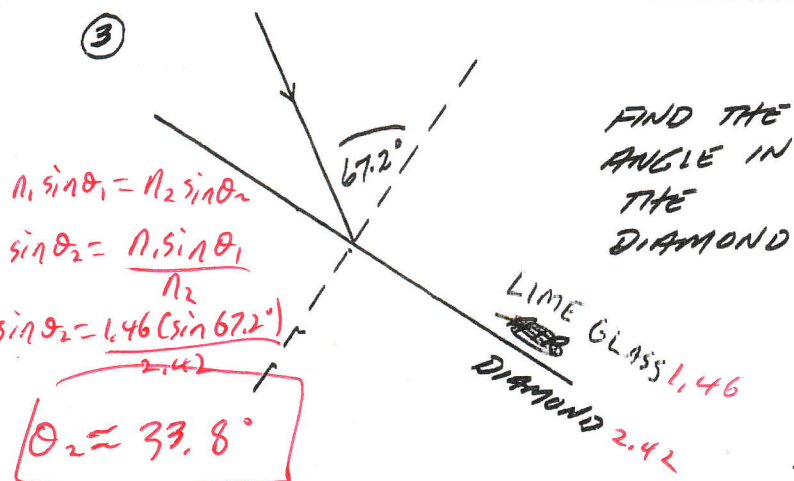 ③
67.2°
FIND THE
ANGLE IN
THE
DIAMOND
n₁ sinθ₁ = n₂ sinθ₂
sinθ₂ = n₁ sinθ₁ / n₂
sinθ₂ = 1.46 (sin 67.2°) / 2.42
θ₂ ≈ 33.8°
LIME GLASS 1.46
DIAMOND 2.42